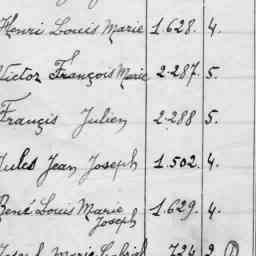 Henri Louis Marie 1.628. 4.
Victor François Marie 2.287. 5.
Francis Julien 2.288 5.
Jules Jean Joseph 1.502. 4.
René Louis Marie 1.629. 4.
Joseph
Marie 724 2 1